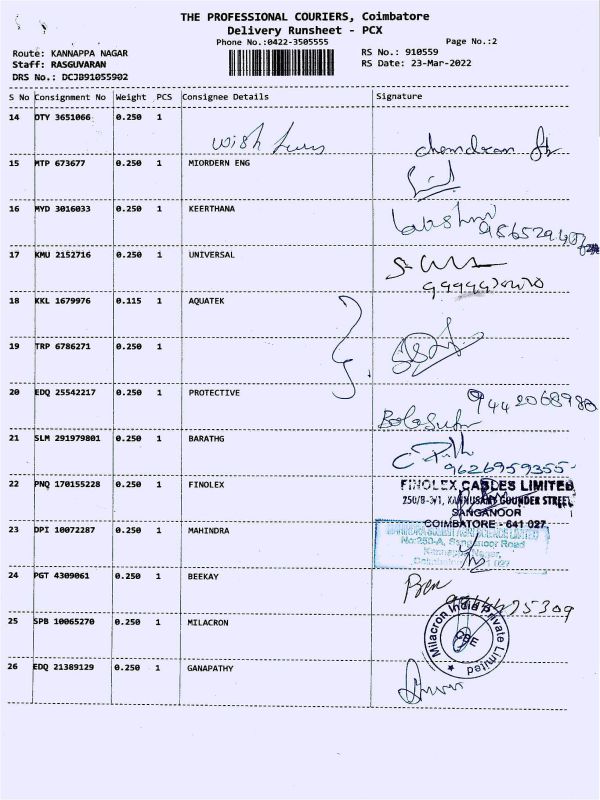 THE PROFESSIONAL COURIERS, Coimbatore
Delivery Runsheet - PCX
Phone No.:0422-3505555
Page No.:2
Route: KANNAPPA NAGAR
RS No.: 910559
Staff: RASGUVARAN
RS Date: 23-Mar-2022
DRS No.: DCJB91055902
S No Consignment No Weight PCS Consignee Details Signature
14 OTY 3651066 0.250 1
chandran
15 MTP 673677 0.250 1 MIORDERN ENG
16 MYD 3016033 0.250 1 KEERTHANA
Lakshmi
17 KMU 2152716 0.250 1 UNIVERSAL
18 KKL 1679976 0.115 1 AQUATEK
19 TRP 6786271 0.250 1
20 EDQ 25542217 0.250 1 PROTECTIVE
9442068980
21 SLM 291979801 0.250 1 BARATHG
9626959355
22 PNQ 170155228 0.250 1 FINOLEX
FINOLEX CABLES LIMITED
250/8-3/1, KANNUSAMY GOUNDER STREET
SANGANOOR
COIMBATORE - 641 027
23 DPI 10072287 0.250 1 MAHINDRA
No:250-A, Sanganoor Road
Kannappa Nagar,
24 PGT 4309061 0.250 1 BEEKAY
25 SPB 10065270 0.250 1 MILACRON
Milacron India Private Limited
CBE
26 EDQ 21389129 0.250 1 GANAPATHY